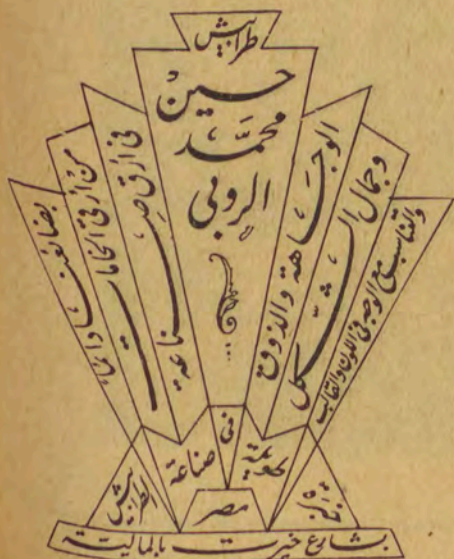 طرابيش
حسين
محمد
الروبي
الوجاهة والذوق
وجمال الشكل
والتناسب مع الوجه فى اللون والقالب
فى ارقى صناعة
من ارقى الخامات
فى
صناعة
الطرابيش
مصر
بشارع خيرت بالمالية